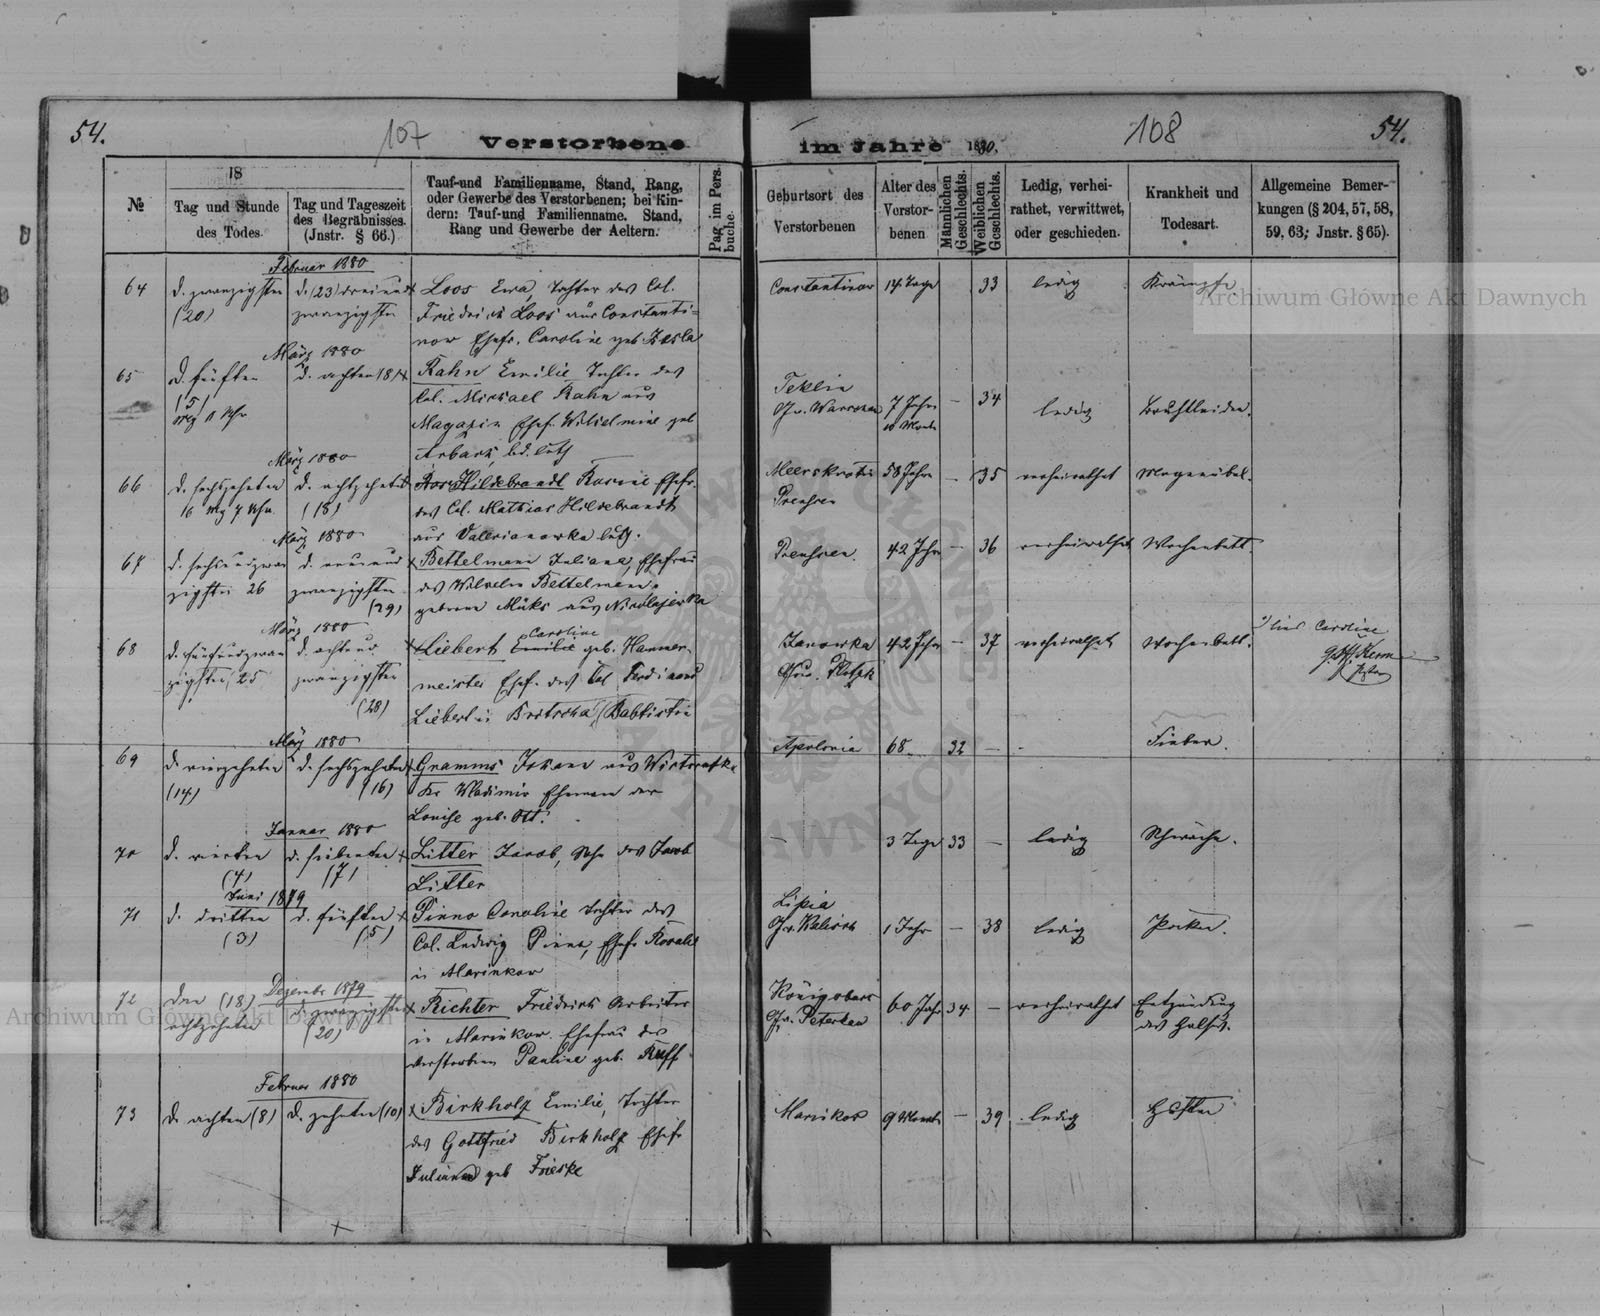 54.
107
Verstorbene
№
18
Tag und Stunde
des Todes.
Tag und Tageszeit
des Begräbnisses.
(Jnstr. § 66.)
Tauf-und Familienname, Stand, Rang,
oder Gewerbe des Verstorbenen; bei Kin-
dern: Tauf-und Familienname. Stand,
Rang und Gewerbe der Aeltern.
Pag. im Pers.
buche.
Februar 1880
64 d. zwanzigsten d. (23) dreiund Loos Ewa, Tochter des Col.
(20) zwanzigsten Friedrich Loos aus Constanti-
now Ehefr. Caroline geb.
März 1880
65 d. fünften d. achten (8) Rahn Emilie Tochter des
(5) Col. Michael Rahn aus
Magazin Ehef. Wilhelmine geb
März 1880
66 d. sechszehnten d. achtzehnten Hildebrandt Rosine Ehefr.
16 Mg 7 Uhr (18) des Col. Mathias Hildebrandt
März 1880 aus Valerianowka luth.
67 d. sechsundzwan d. neunund Bettelmann Juliane, Ehefrau
zigsten 26 zwanzigsten des Wilhelm Bettelmann
(29) geborene aus Nicolajewka
März 1880 Caroline
68 d. fünfundzwan d. achtund Liebert Emilie geb. Hammer-
zigsten 25 zwanzigsten meister Ehef. des Col Ferdinand
(28) Liebert in (Babtistin
März 1880
69 d. vierzehnten d. sechszehnten Gramms Johann aus
(14) (16) Kr. Wladimir Ehemann der
Louise geb. Ott.
Januar 1880
70 d. vierten d. siebenten Litter Jacob, Sohn des Jacob
(4) (7) Litter
Juni 1879
71 d. dritten d. fünften Pinno Caroline Tochter des
(3) (5) Col. Ludwig Pinno, Ehefr Rosalie
in Marinkow
Dezember 1879
72 den (18) d. zwanzigsten Richter Friedrich Arbeiter
achtzehnten (20) in Marinkow. Ehefrau des
verstorbenen Pauline geb. Ruff
Februar 1880
73 d. achten (8) d. zehnten (10) Birkholz Emilie, Tochter
des Gottfried Birkholz Ehefr
Juliane geb Frieske
108
54.
im Jahre 1880.
Geburtsort des
Verstorbenen
Alter des
Verstor-
benen
Männlichen
Geschlechts.
Weiblichen
Geschlechts.
Ledig, verhei-
rathet, verwittwet,
oder geschieden.
Krankheit und
Todesart.
Allgemeine Bemer-
kungen (§ 204, 57, 58,
59, 63; Jnstr. § 65).
Constantinow 14 Tage 33 ledig Krämpfe
Teklin
Gv. Warschau 7 Jahr — 34 ledig Brustleiden.
10 Monate
58 Jahre — 35 verheirathet Magenübel.
Preussen
Preussen. 42 Jahr — 36 verheirathet Wochenbett.
Janowka 42 Jahr — 37 verheirathet Wochenbett. lies Caroline
Gouv. Plotzk
Apolonia 68 32 — Fieber.
— 3 Tage 33 — ledig Schwäche.
Lipia
Gv. Kalisch 1 Jahr — 38 ledig Pocken.
Gv. Peterkau 60 Jahr 34 — verheirathet Entzündung
des Halses.
Marinkow 9 Monate — 39 ledig Husten
Archiwum Główne Akt Dawnych
Archiwum Główne Akt Dawnych